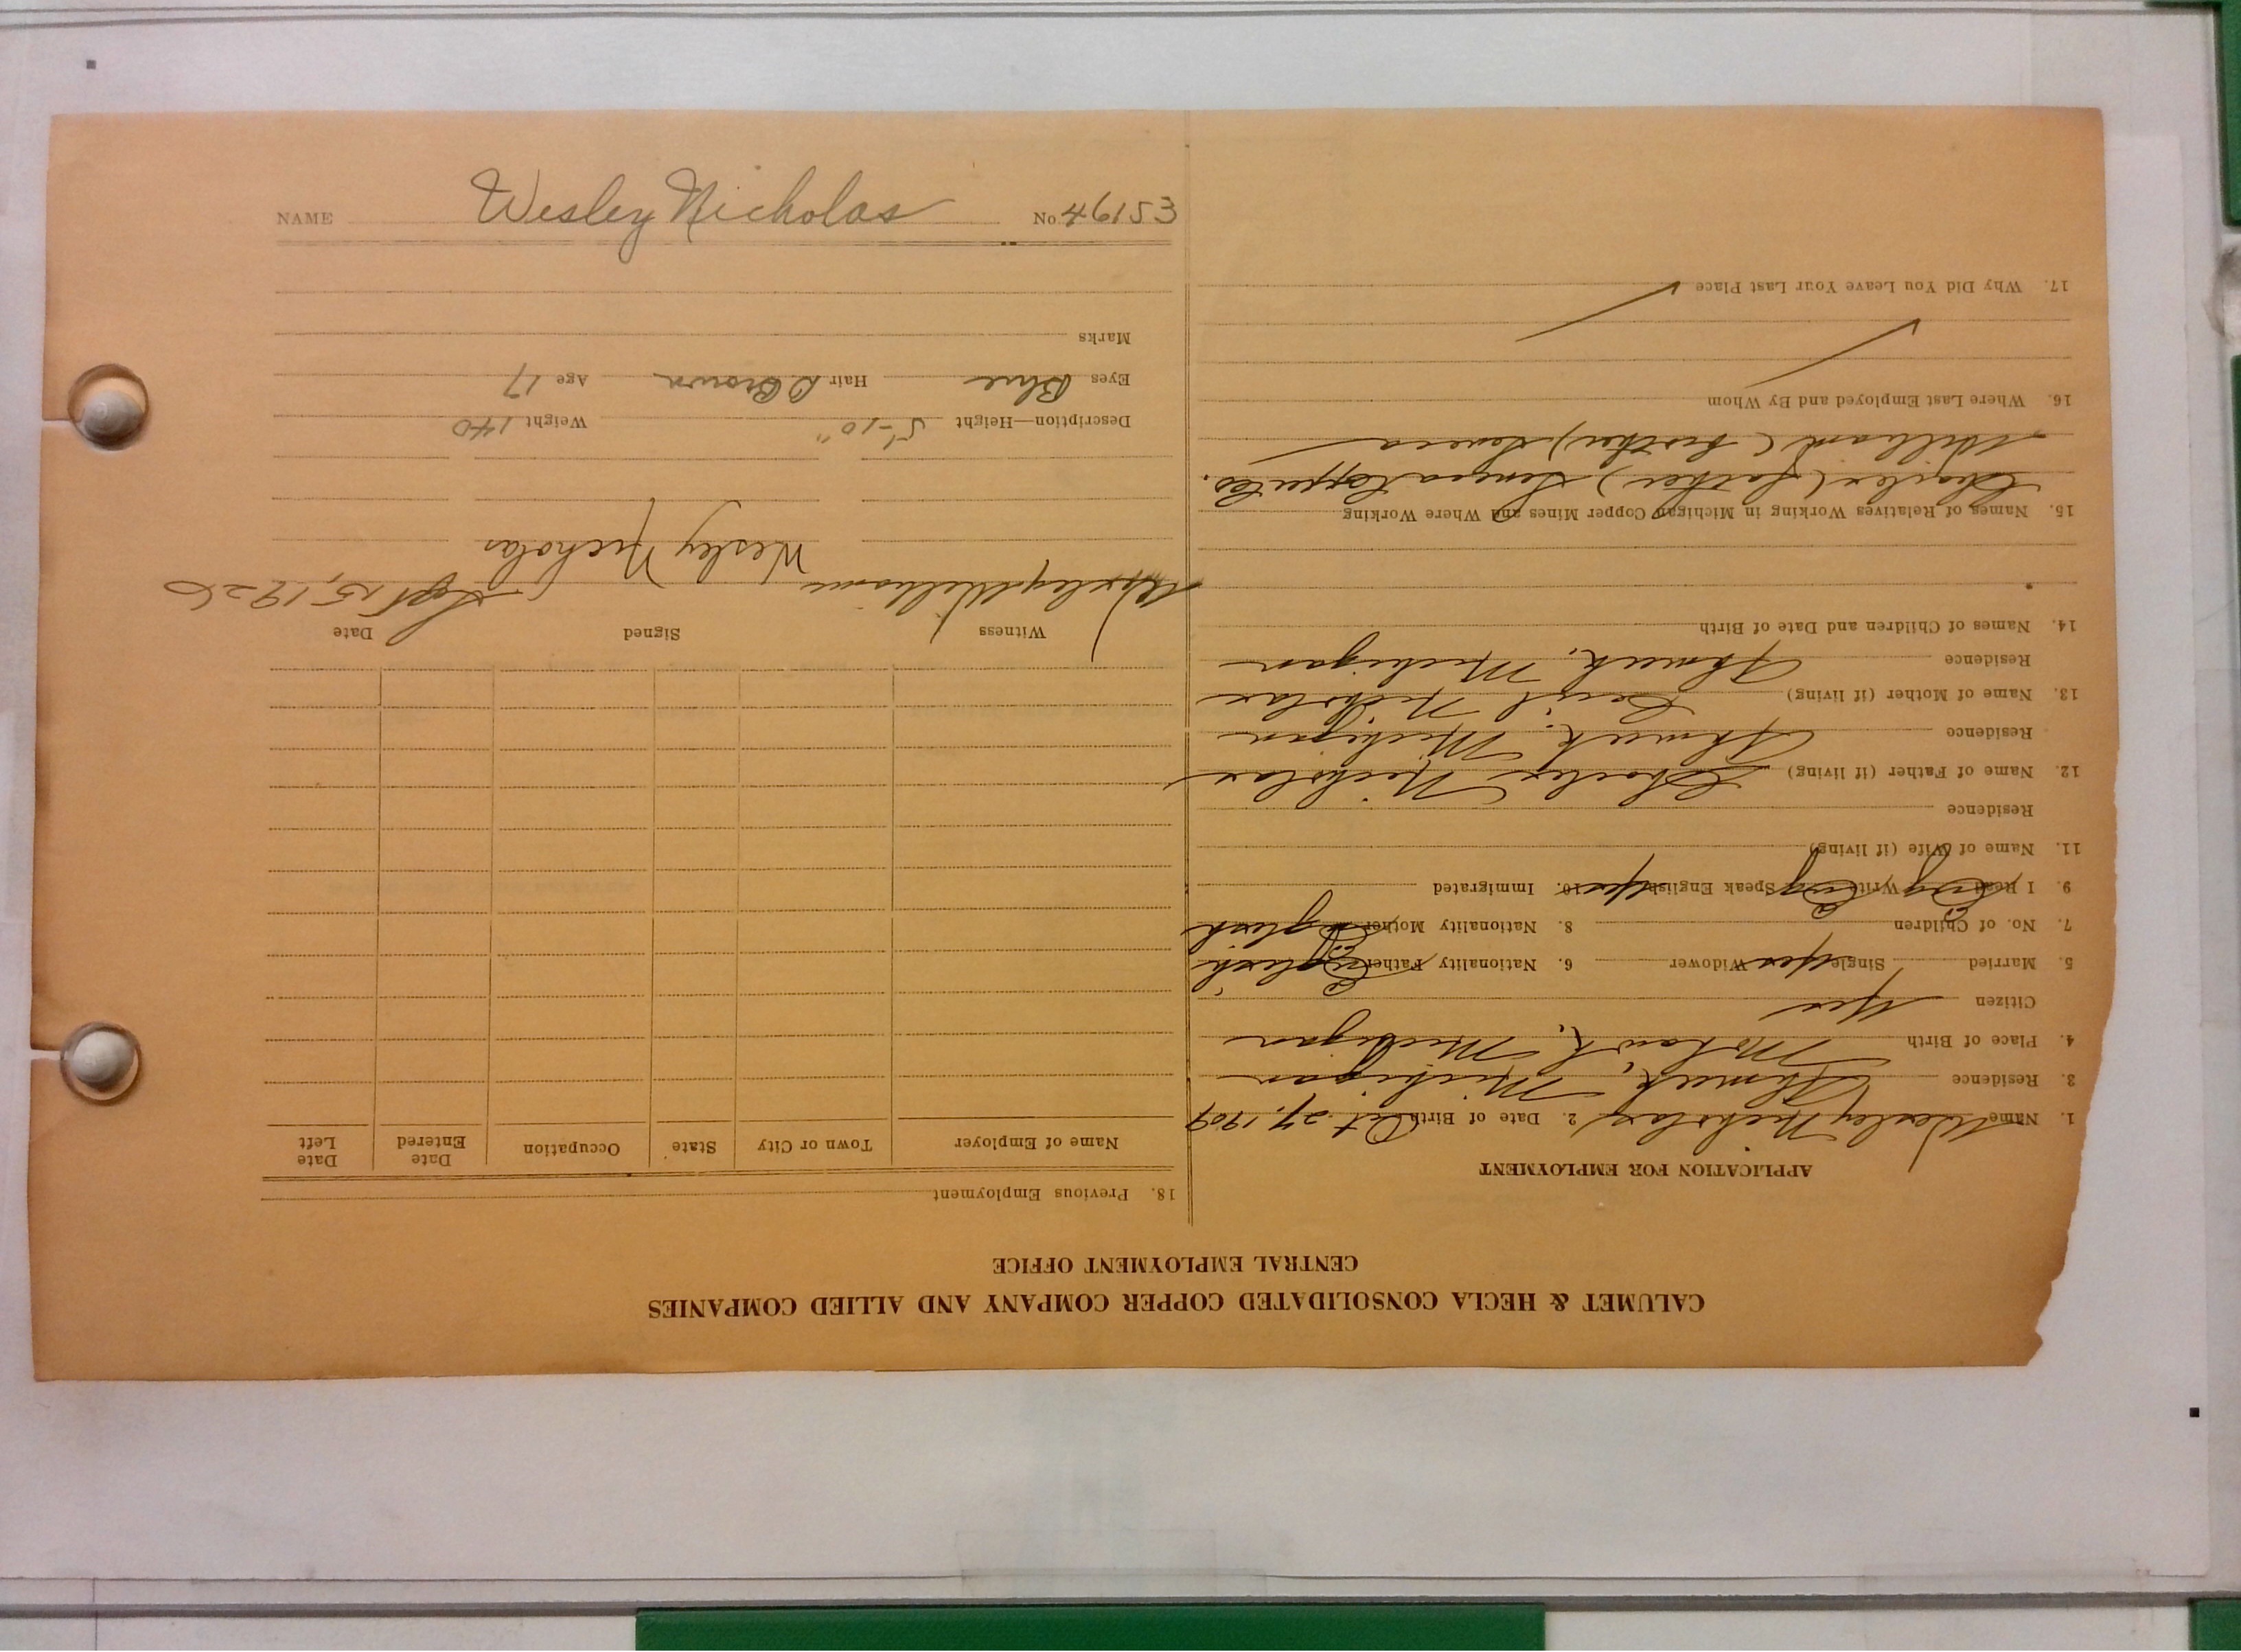 CALUMET & HECLA CONSOLIDATED COPPER COMPANY AND ALLIED COMPANIES
CENTRAL EMPLOYMENT OFFICE
APPLICATION FOR EMPLOYMENT
1. Name Wesley Nicholas 2. Date of Birth Oct. 27, 1909
3. Residence Ahmeek, Michigan
4. Place of Birth Mohawk, Michigan
Citizen Yes
5. Married Single yes Widower 6. Nationality Father English
7. No. of Children 8. Nationality Mother English
9. I Read Eng Write Eng Speak English yes 10. Immigrated
11. Name of Wife (if living)
Residence
12. Name of Father (if living) Charles Nicholas
Residence Ahmeek, Michigan
13. Name of Mother (if living) Nicholas
Residence Ahmeek, Michigan
14. Names of Children and Date of Birth
15. Names of Relatives Working in Michigan Copper Mines and Where Working
Charles (father) Seneca Copper Co.
(brother) Seneca
16. Where Last Employed and By Whom
17. Why Did You Leave Your Last Place
18. Previous Employment
Name of Employer Town or City State Occupation Date Entered Date Left
Witness Signed Date
Wesley Williams Wesley Nicholas Sept 15, 1926
Description—Height 5'-10" Weight 140
Eyes Blue Hair D Brown Age 17
Marks
NAME Wesley Nicholas No 46153